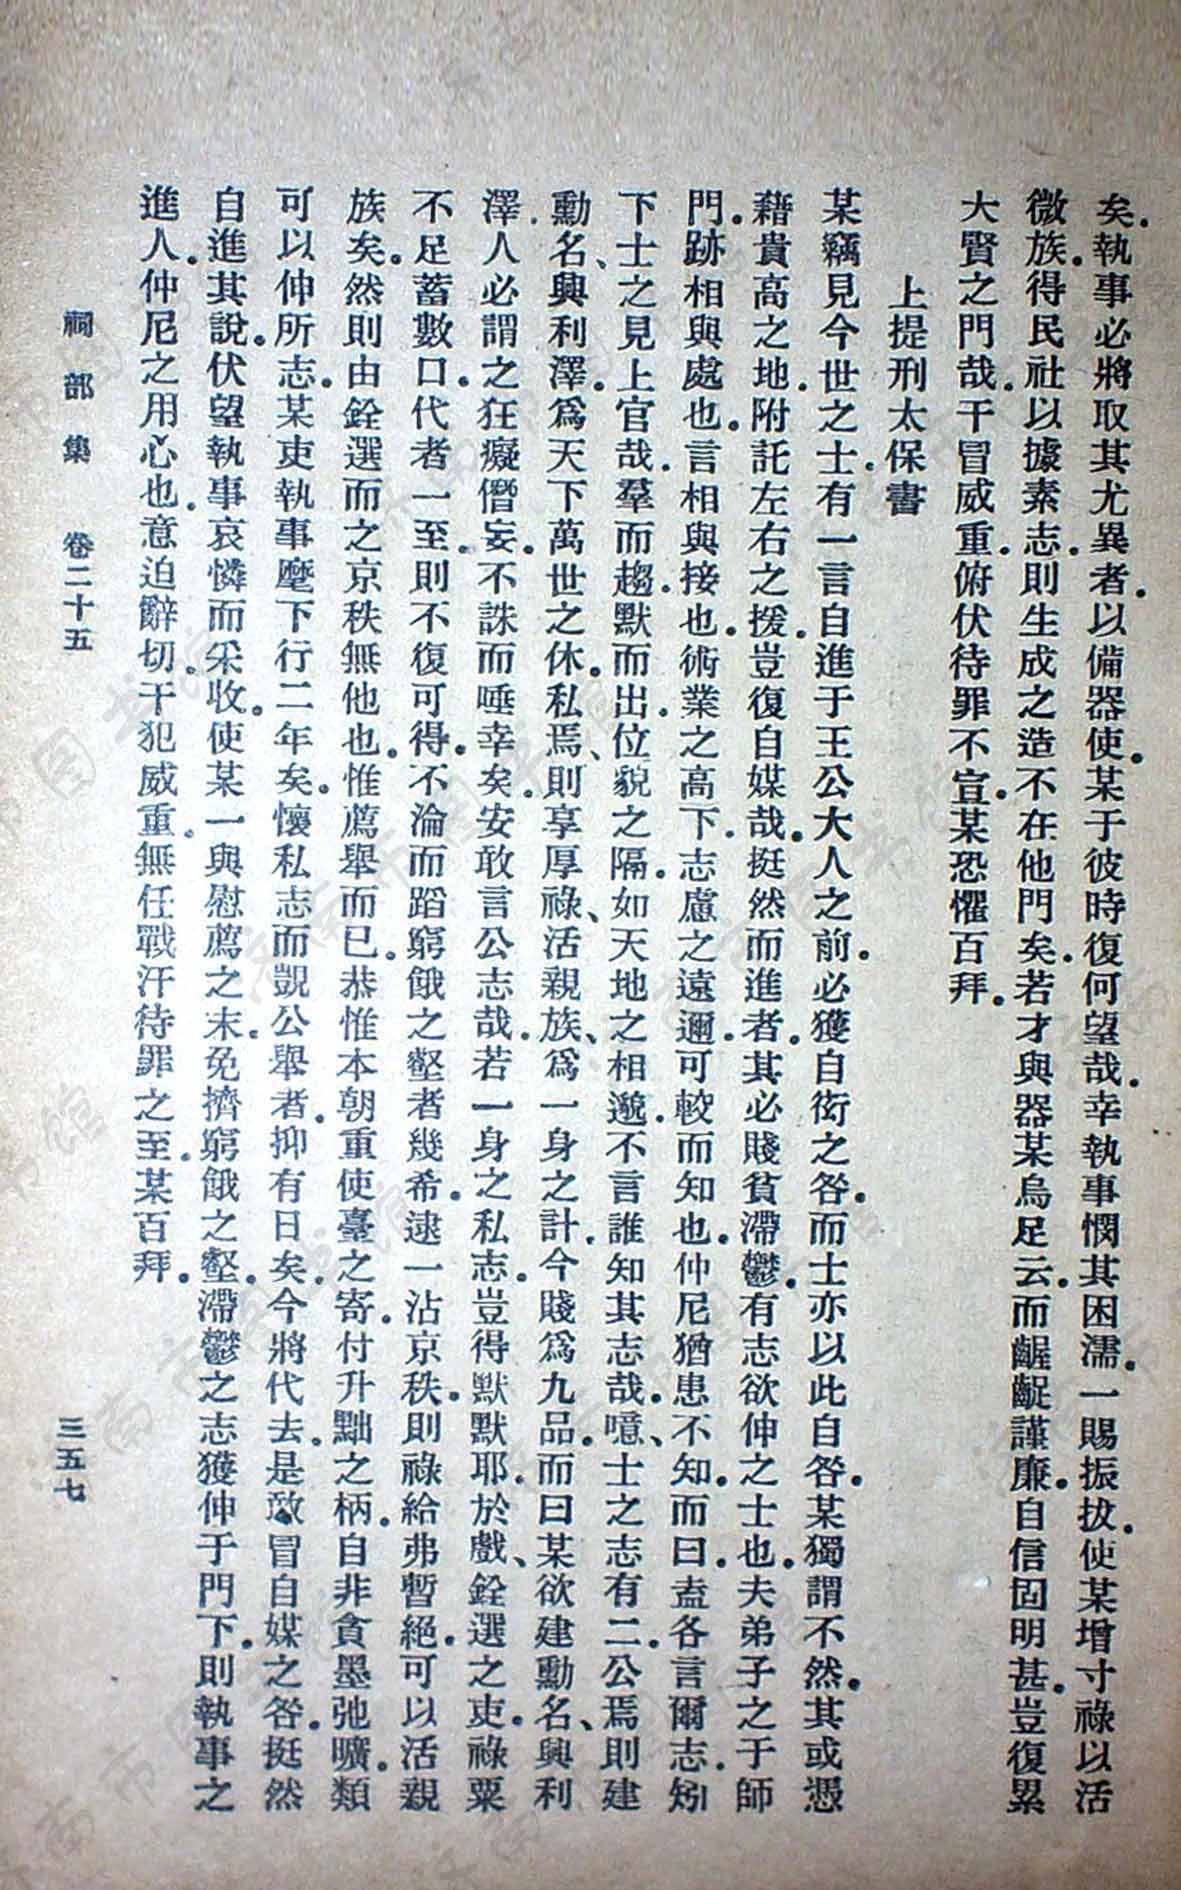 矣。執事必將取其尤異者。以備器使。某于彼時復何望哉。幸執事憫其困濡。一賜振拔。使某增寸祿以活
微族。得民社以據素志。則生成之造不在他門矣。若才與器某烏足云。而齷齪謹廉。自信固明甚。豈復累
大賢之門哉。干冒威重。俯伏待罪不宣。某恐懼百拜。
上提刑太保書
某竊見今世之士。有一言自進于王公大人之前。必獲自衒之咎。而士亦以此自咎。某獨謂不然。其或憑
藉貴高之地。附託左右之援。豈復自媒哉。挺然而進者。其必賤貧滯鬱。有志欲伸之士也。夫弟子之于師
門。跡相與處也。言相與接也。術業之高下。志慮之遠邇。可較而知也。仲尼猶患不知。而曰。盍各言爾志。矧
下士之見上官哉。羣而趨。默而出。位貌之隔。如天地之相邈。不言誰知其志哉。噫、士之志有二。公焉則建
勳名、興利澤。爲天下萬世之休。私焉、則享厚祿、活親族、爲一身之計。今賤爲九品。而曰某欲建勳名、興利
澤。人必謂之狂癡僭妄。不誅而唾幸矣。安敢言公志哉。若一身之私志。豈得默默耶。於戲、銓選之吏。祿粟
不足蓄數口。代者一至。則不復可得。不淪而蹈窮餓之壑者幾希。逮一沾京秩。則祿給弗暫絕。可以活親
族矣。然則由銓選而之京秩無他也。惟薦舉而已。恭惟本朝重使臺之寄。付升黜之柄。自非貪墨弛曠。類
可以伸所志。某吏執事麾下行二年矣。懷私志而覬公舉者。抑有日矣。今將代去。是敢冒自媒之咎。挺然
自進其說。伏望執事哀憐而采收。使某一與慰薦之末。免擠窮餓之壑。滯鬱之志獲伸于門下。則執事之
進人。仲尼之用心也。意迫辭切。干犯威重。無任戰汗待罪之至。某百拜。
祠部集 卷二十五 三五七